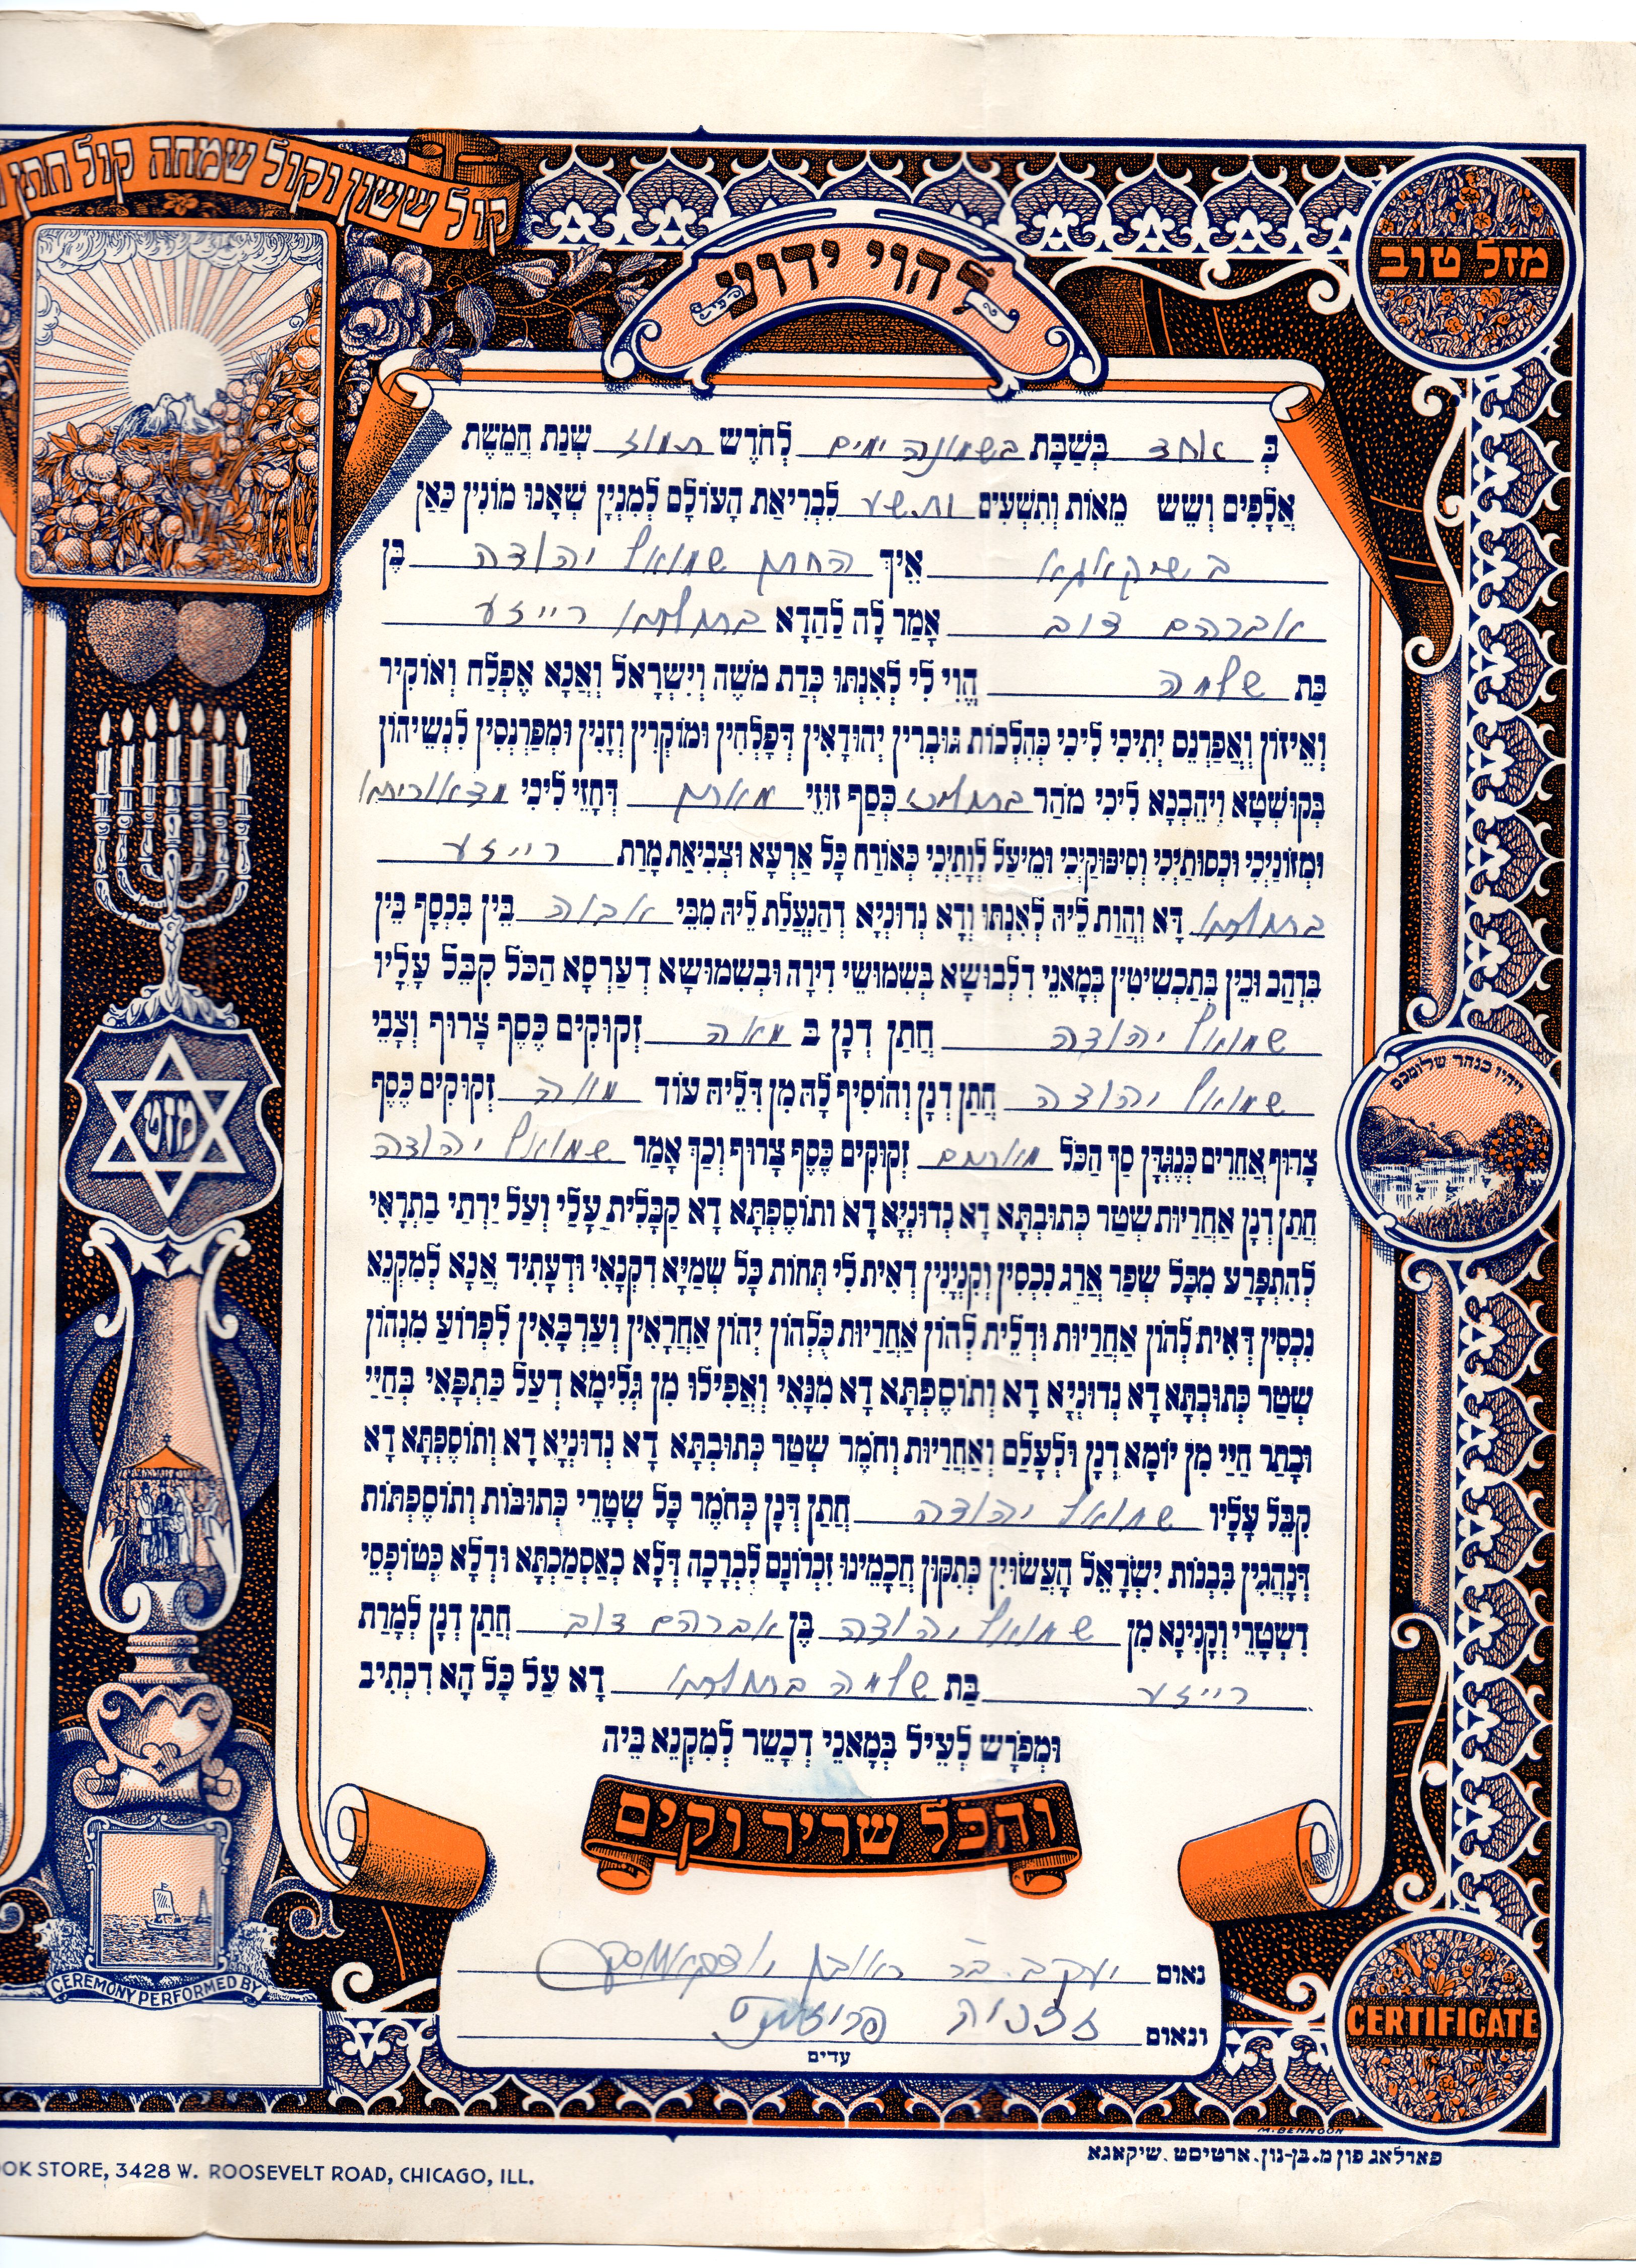 קול ששון וקול שמחה קול חתן
להוי ידוע
מזל טוב
בְּ אחד בְּשַׁבָּת בשמונה ימים לְחֹדֶשׁ תמוז שְׁנַת חֲמֵשֶׁת
אֲלָפִים וְשֵׁשׁ מֵאוֹת וְתִשְׁעִים ותשע לִבְרִיאַת הָעוֹלָם לְמִנְיָן שֶׁאָנוּ מוֹנִין כַּאן
בשיקאגא אֵיךְ החתן שמואל יהודה בֶּן
אברהם דוב אָמַר לָהּ לַהֲדָא בתולתא רייזע
בַּת שלמה הֱוִי לִי לְאִנְתּוּ כְּדַת מֹשֶׁה וְיִשְׂרָאֵל וַאֲנָא אֶפְלַח וְאוֹקִיר
וְאֵיזוֹן וַאֲפַרְנֵס יָתִיכִי לִיכִי כְּהִלְכוֹת גּוּבְרִין יְהוּדָאִין דְּפָלְחִין וּמוֹקְרִין וְזָנִין וּמְפַרְנְסִין לִנְשֵׁיהוֹן
בְּקוּשְׁטָא וִיהֵבְנָא לִיכִי מֹהַר בתולייכי כְּסַף זוּזֵי מאתן דְּחָזֵי לִיכִי מדאוריתא
וּמְזוֹנַיְכִי וּכְסוּתַיְכִי וְסִיפּוּקַיְכִי וּמֵיעַל לְוָתַיְכִי כְּאוֹרַח כָּל אַרְעָא וּצְבִיאַת מָרַת רייזע
בתולתא דָּא וַהֲוַת לֵיהּ לְאִנְתּוּ וְדָא נְדוּנְיָא דְּהַנְעֲלַת לֵיהּ מִבֵּי אבוה בֵּין בִּכְסַף בֵּין
בִּדְהַב וּבֵין בְּתַכְשִׁיטִין בְּמָאנֵי דִלְבוּשָׁא בְּשִׁמוּשֵׁי דִירָה וּבְשִׁמוּשָׁא דְעַרְסָא הַכֹּל קִבֵּל עָלָיו
שמואל יהודה חֲתַן דְּנָן בּ מאה זְקוּקִים כֶּסֶף צָרוּף וְצָבֵי
שמואל יהודה חֲתַן דְּנָן וְהוֹסִיף לָהּ מִן דִּלֵיהּ עוֹד מאה זְקוּקִים כֶּסֶף
צָרוּף אֲחֵרִים כְּנֶגְדָּן סַךְ הַכֹּל מאתים זְקוּקִים כֶּסֶף צָרוּף וְכַךְ אָמַר שמואל יהודה
חֲתַן דְּנָן אַחֲרָיוּת שְׁטַר כְּתוּבְתָּא דָא נְדוּנְיָא דָא וְתוֹסֶפְתָּא דָא קַבָּלִית עָלַי וְעַל יַרְתַי בַּתְרָאִי
לְהִתְפָּרַע מִכָּל שְׁפַר אֲרַג נִכְסִין וְקִנְיָנִין דְּאִית לִי תְּחוֹת כָּל שְׁמַיָּא דִקְנָאִי וּדְעָתִיד אֲנָא לְמִקְנֵא
נִכְסִין דְּאִית לְהוֹן אַחֲרָיוּת וּדְלֵית לְהוֹן אַחֲרָיוּת כֻּלְּהוֹן יְהוֹן אַחֲרָאִין וְעַרְבָּאִין לִפְרוֹעַ מִנְּהוֹן
שְׁטַר כְּתוּבְתָּא דָּא נְדוּנְיָא דָּא וְתוֹסֶפְתָּא דָא מִנָּאִי וַאֲפִילוּ מִן גְּלִימָא דְעַל כַּתְפָּאִי בְּחַיַּי
וּבָתַר חַיַּי מִן יוֹמָא דְנָן וּלְעָלַם וְאַחֲרָיוּת וְחֹמֶר שְׁטַר כְּתוּבְתָּא דָּא נְדוּנְיָא דָא וְתוֹסֶפְתָּא דָא
קִבֵּל עָלָיו שמואל יהודה חֲתַן דְּנָן כְּחֹמֶר כָּל שְׁטָרֵי כְּתוּבּוֹת וְתוֹסֶפְתּוֹת
דְּנָהֲגִין בִּבְנוֹת יִשְׂרָאֵל הָעֲשׂוּיִן כְּתִקּוּן חֲכָמֵינוּ זִכְרוֹנָם לִבְרָכָה דְּלָא כְאַסְמַכְתָּא וּדְלָא כְּטוֹפְסֵי
דִשְׁטָרֵי וְקָנִינָא מִן שמואל יהודה בֶּן אברהם דוב חֲתַן דְּנָן לְמָרַת
רייזע בַּת שלמה בתולתא דָא עַל כָּל הָא דִכְתִיב
וּמְפוֹרָשׁ לְעֵיל בְּמָאנֵי דְכָשֵׁר לְמִקְנֵא בֵּיהּ
והכל שריר וקים
נאום יעקב בר ראובן
ונאום
עדים
מזט
ויהי כנהר שלומכם
CEREMONY PERFORMED BY
CERTIFICATE
M. BENNOON
פארלאג פון מ. בן-נון. ארטיסט. שיקאגא
OOK STORE, 3428 W. ROOSEVELT ROAD, CHICAGO, ILL.